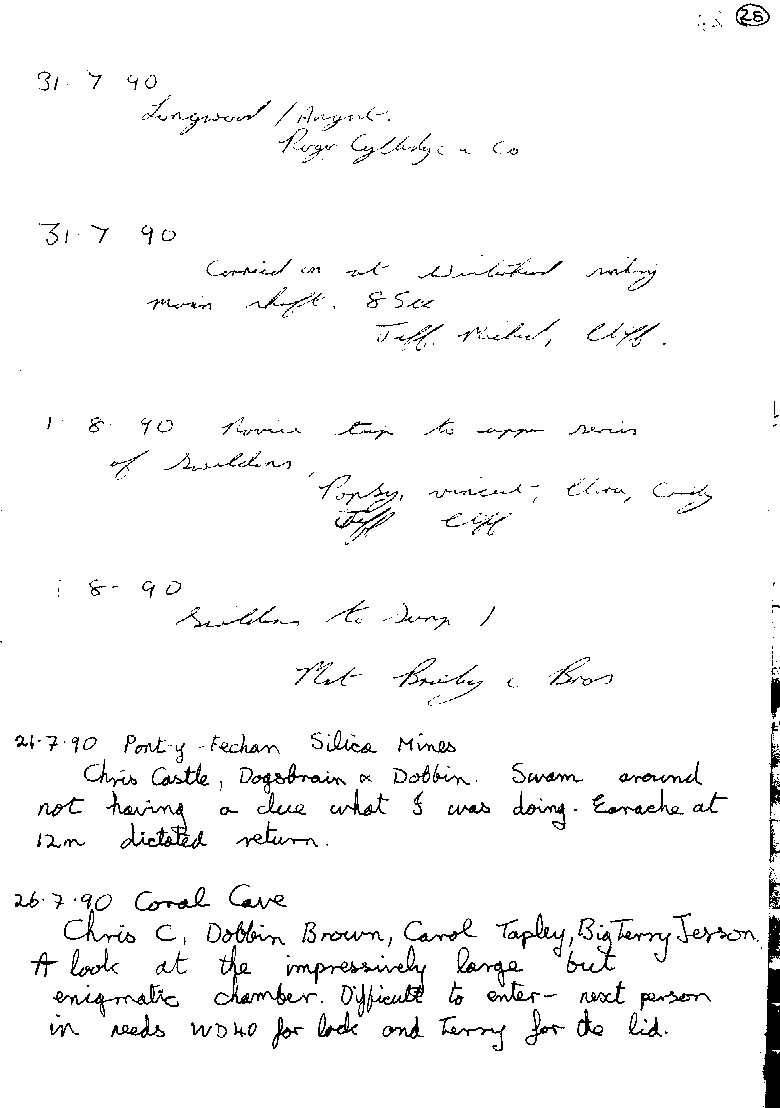 28
31·7 90
Longwood / August.
Roger
& Co
31·7 90
Carried on at Winterhead
main shaft.
Jeff, Michael, Cliff.
1·8·90 Novice trip to upper series
of Swildons,
Popsy, Vincent,
Jeff Cliff
1 8-90
Swildons to Sump 1
Mat & Bros
21·7·90 Pont-y-Fechan Silica Mines
Chris Castle, Dogsbrain & Dobbin. Swam around
not having a clue what I was doing. Earache at
12m dictated return.
26·7·90 Coral Cave
Chris C, Dobbin Brown, Carol Tapley, Big Terry Jesson
A look at the impressively large but
enigmatic chamber. Difficult to enter - next person
in needs WD40 for lock and Terry for the lid.